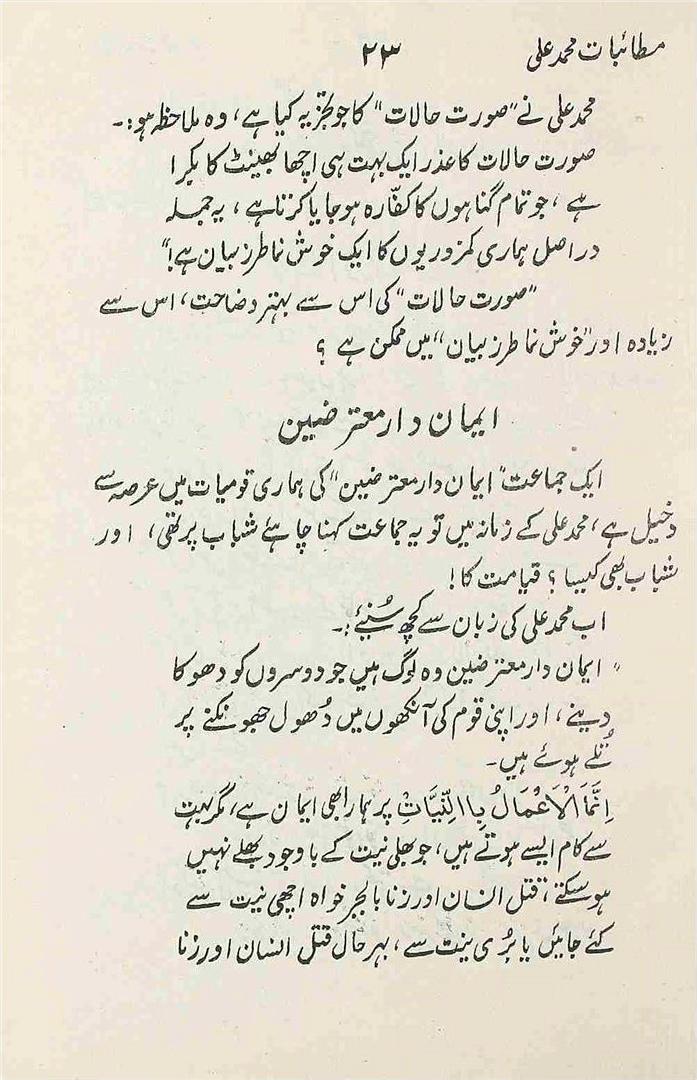 مطائبات محمد علی
۲۳
محمد علی نے "صورت حالات" کا جو تجزیہ کیا ہے، وہ ملاحظہ ہو:۔
صورت حالات کا عذر ایک بہت ہی اچھا بھینٹ کا بکرا
ہے، جو تمام گناہوں کا کفّارہ ہو جایا کرتا ہے، یہ جملہ
در اصل ہماری کمزوریوں کا ایک خوش نما طرز بیان ہے!"
"صورت حالات" کی اس سے بہتر وضاحت، اس سے
زیادہ اور "خوش نما طرز بیان" میں ممکن ہے ؟
ایمان دار معترضین
ایک جماعت "ایمان دار معترضین" کی ہماری قومیات میں عرصہ سے
دخیل ہے، محمد علی کے زمانہ میں تو یہ جماعت کہنا چاہئے شباب پر تھی، اور
شباب بھی کیسا ؟ قیامت کا!
اب محمد علی کی زبان سے کچھ سُنیئے:۔
"ایمان دار معترضین وہ لوگ ہیں جو دوسروں کو دھوکا
دینے، اور اپنی قوم کی آنکھوں میں دُھول جھونکنے پر
تُلے ہوئے ہیں۔
اِنَّمَا الْاَعْمَالُ بِاالنِّیَّاتِ پر ہمارا بھی ایمان ہے، مگر بہت
سے کام ایسے ہوتے ہیں، جو بھلی نیت کے باوجود بھلے نہیں
ہو سکتے، قتل انسان اور زنا بالجبر خواہ اچھی نیت سے
کئے جائیں یا بُری نیت سے، بہر حال قتل انسان اور زنا